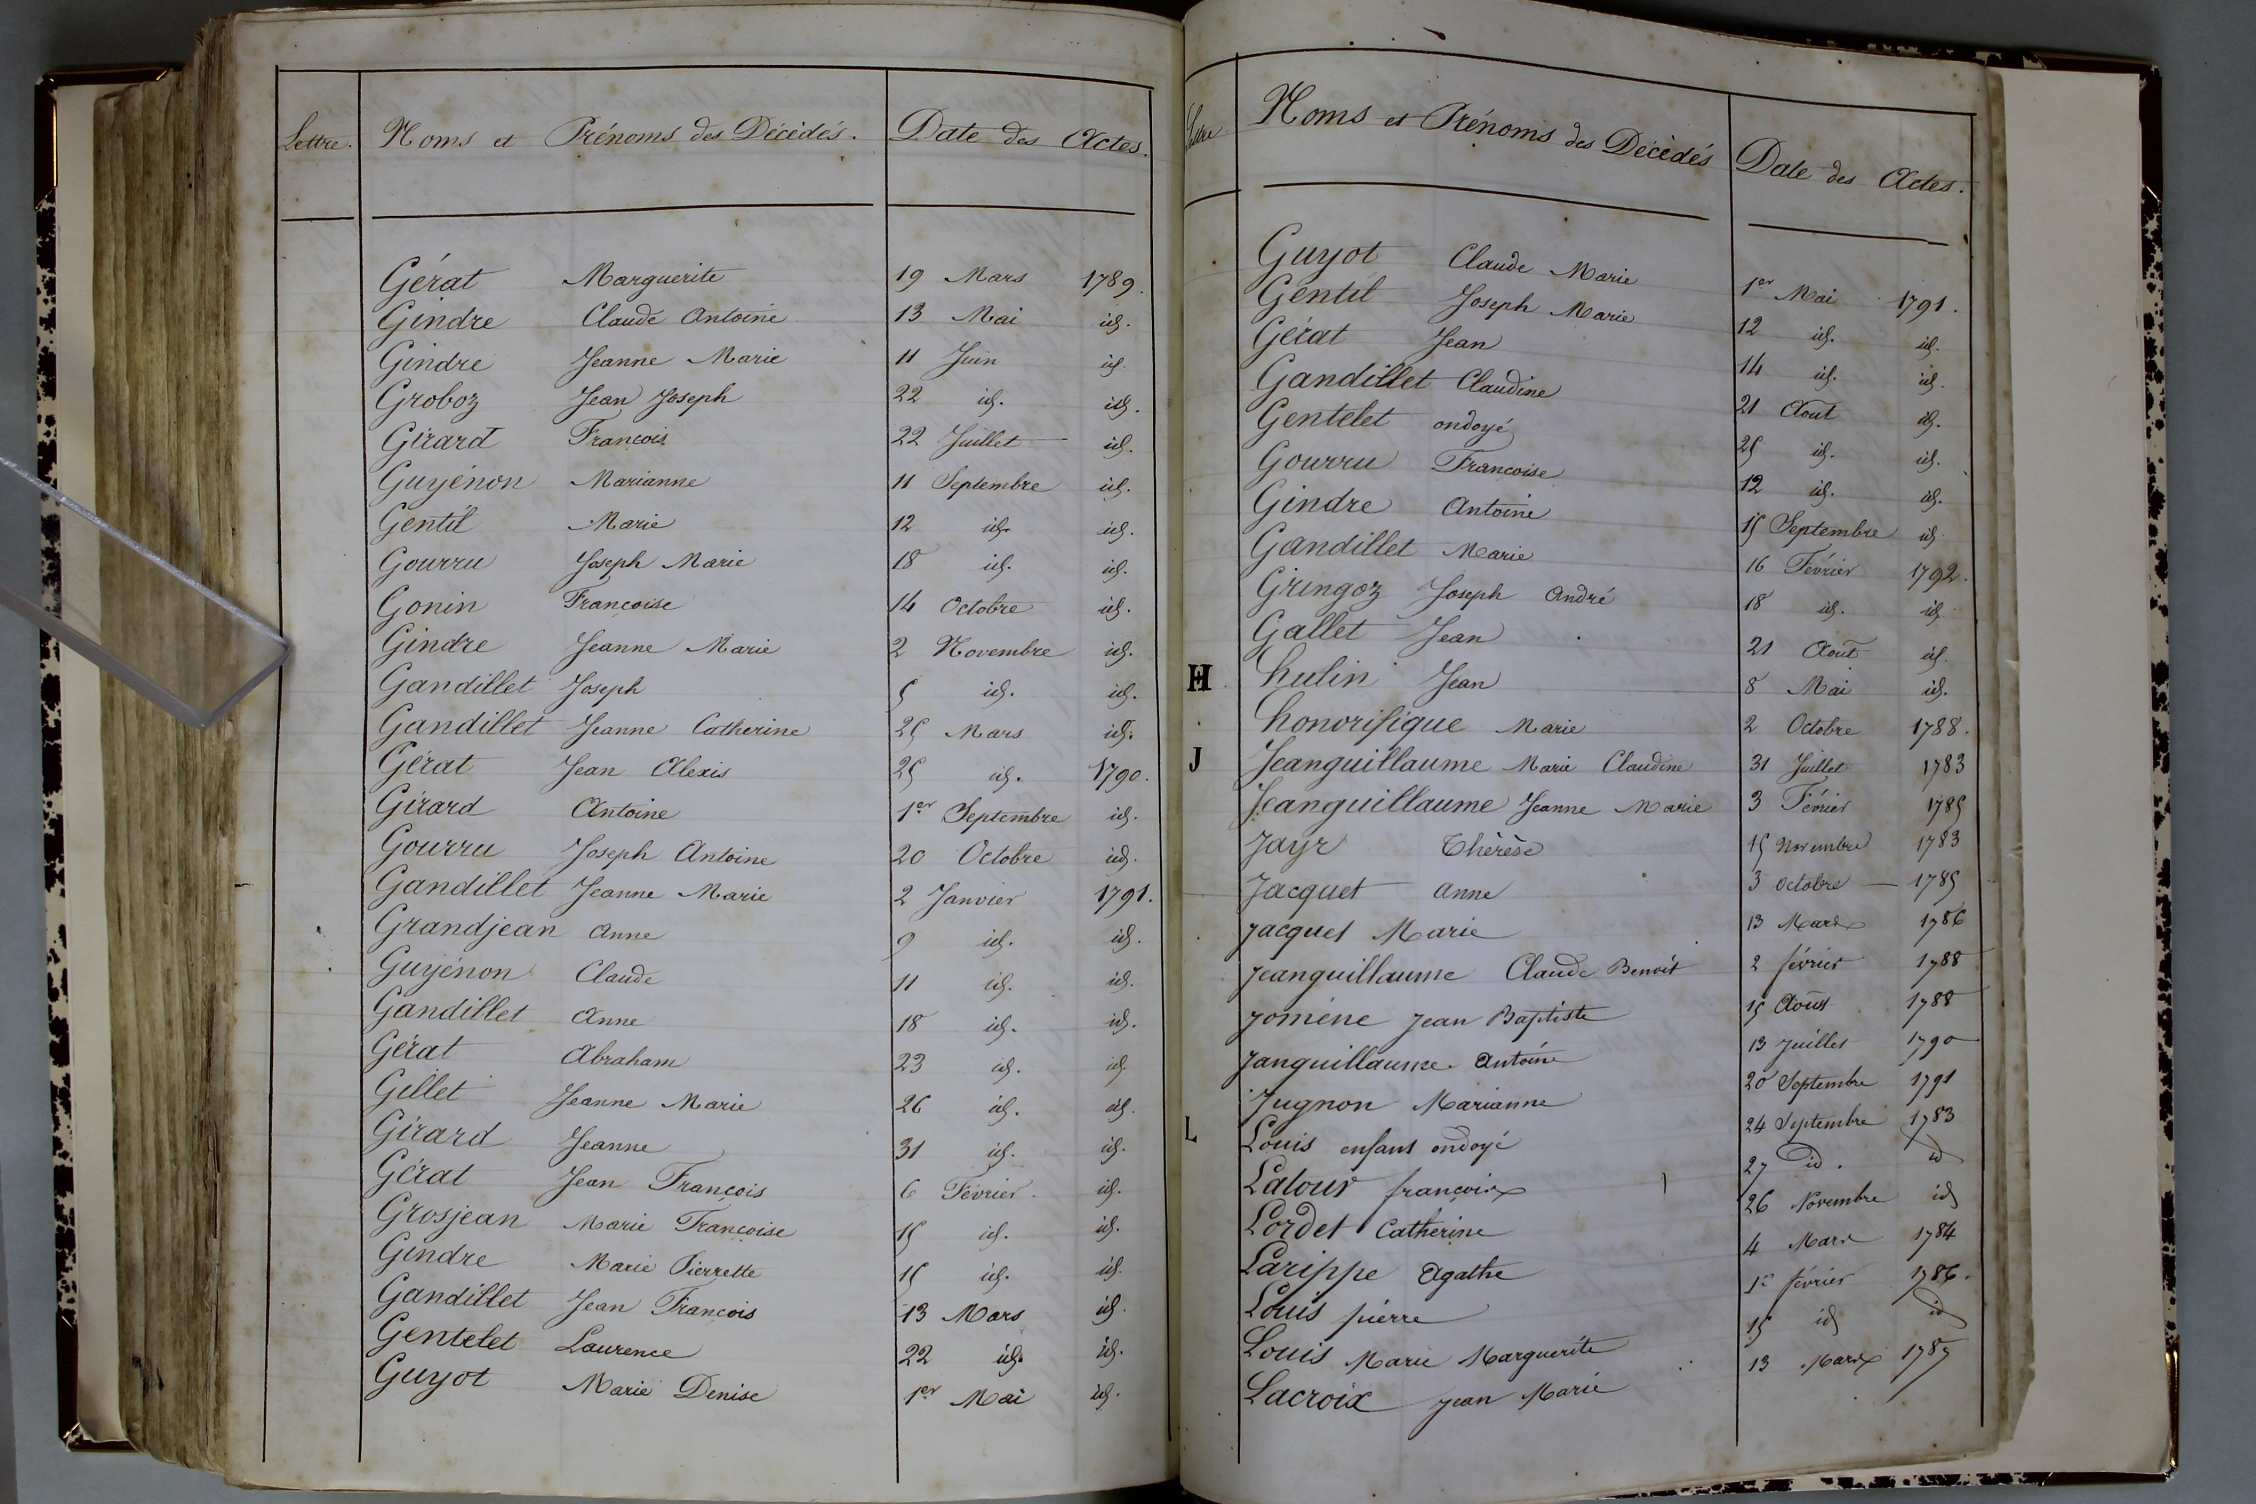 Lettre. Noms et Prénoms des Décédés. Date des Actes.
Gérat Marguerite 19 Mars 1789.
Gindre Claude Antoine 13 Mai id.
Gindre Jeanne Marie 11 Juin id.
Groboz Jean Joseph 22 id. id.
Girard François 22 Juillet id.
Guyénon Marianne 11 Septembre id.
Gentil Marie 12 id. id.
Gourru Joseph Marie 18 id. id.
Gonin Francoise 14 Octobre id.
Gindre Jeanne Marie 2 Novembre id.
Gandillet Joseph 5 id. id.
Gandillet Jeanne Catherine 25 Mars id.
Gérat Jean Alexis 25 id. 1790.
Girard Antoine 1er Septembre id.
Gourru Joseph Antoine 20 Octobre id.
Gandillet Jeanne Marie 2 Janvier 1791.
Grandjean Anne 9 id. id.
Guyénon Claude 11 id. id.
Gandillet Anne 18 id. id.
Gérat Abraham 23 id. id
Gillet Jeanne Marie 26 id. id.
Girard Jeanne 31 id. id.
Gérat Jean François 6 Février. id.
Grosjean Marie Françoise 15 id. id.
Gindre Marie Pierrette 15 id. id.
Gandillet Jean François 13 Mars id.
Gentelet Laurence 22 id. id.
Guyot Marie Denise 1er Mai id.
Lettre Noms et Prénoms des Décédés Date des Actes.
Guyot Claude Marie 1er Mai 1791.
Gentil Joseph Marie 12 id. id.
Gérat Jean 14 id. id.
Gandillet Claudine 21 Aout id.
Gentelet ondoyé 25 id. id.
Gourru Francoise 12 id. id.
Gindre Antoine 15 Septembre id
Gandillet Marie 16 Février 1792.
Gringoz Joseph André 18 id. id
Gallet Jean 21 Aout id.
H hulin Jean 8 Mai id.
honorifique Marie 2 Octobre 1788.
J Jeanguillaume Marie Claudine 31 Juillet 1783
Jeanguillaume Jeanne Marie 3 Février 1785
Jayr Thérèse 15 Novembre 1783
Jacquet Anne 3 octobre 1785
jacquet Marie 13 Mars 1786
jeanguillaume Claude Benoit 2 février 1788
jomène jean Baptiste 15 Aout 1788
janguillaume Antoine 13 juillet 1790
Jugnon Marianne 20 Septembre 1791
L Louis enfant ondoyé 24 Septembre 1783
Latour françoix 27 id. id
Lordet Catherine 26 Novembre id
Larippe Agathe 4 Mars 1784
Louis pierre 1er février 1786.
Louis Marie Marguerite 15 id id
Lacroix jean Marie 13 Mars 1787